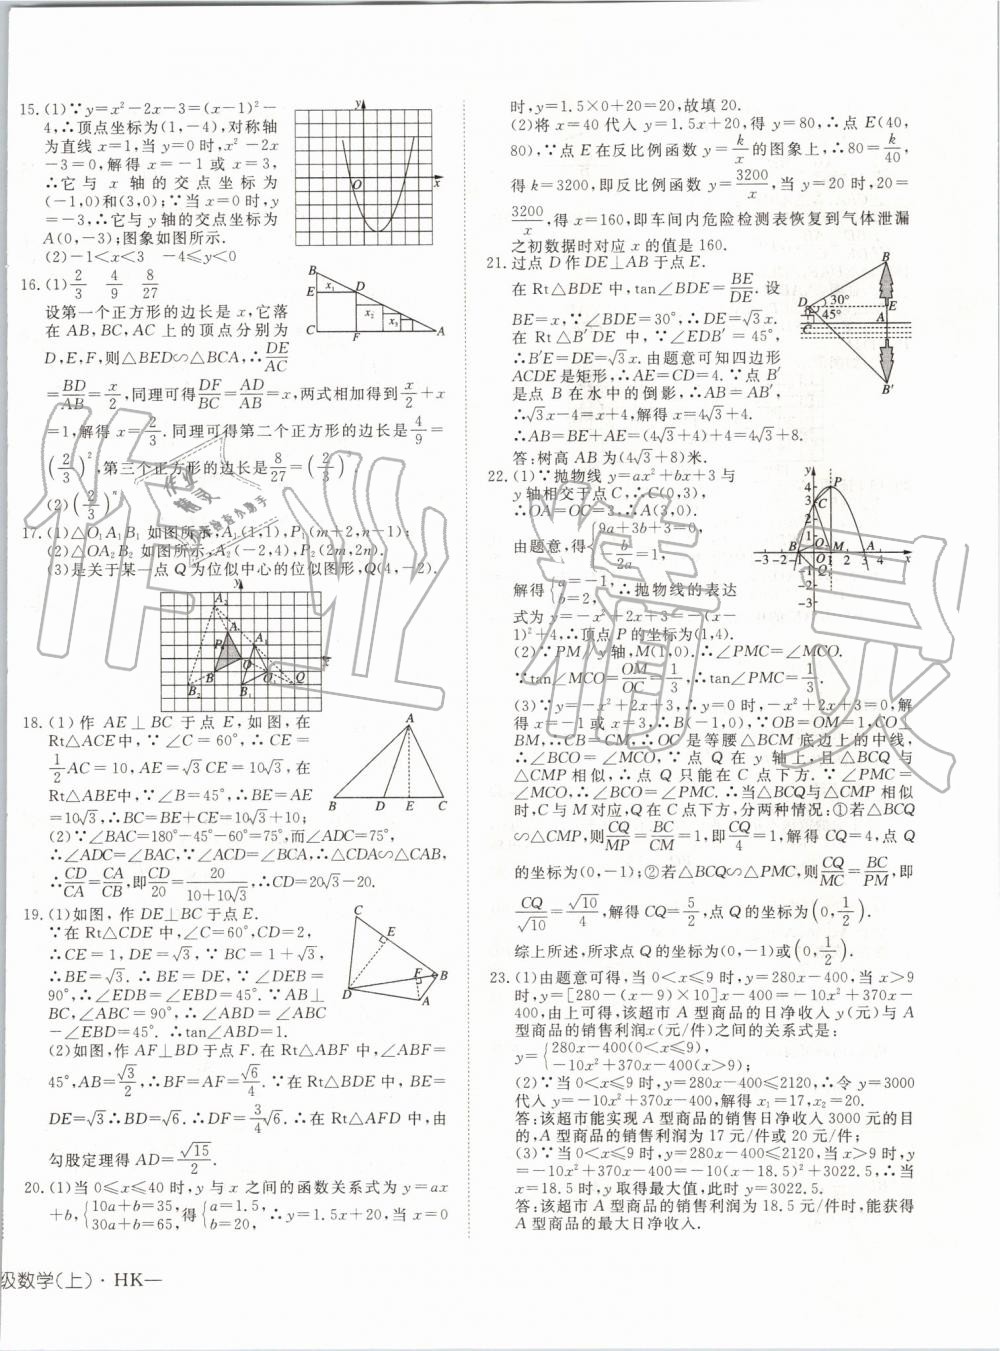 15. (1)∵y=x²-2x-3=(x-1)²-
4,∴顶点坐标为(1,-4),对称轴
为直线x=1,当y=0时,x²-2x
-3=0,解得x=-1或x=3,
∴它与x轴的交点坐标为
(-1,0)和(3,0);∵当x=0时,y
=-3,∴它与y轴的交点坐标为
A(0,-3);图象如图所示.
(2)-1<x<3 -4≤y<0
16. (1)2/3 4/9 8/27
设第一个正方形的边长是x,它落
在AB,BC,AC上的顶点分别为
D,E,F,则△BED∽△BCA,∴DE/AC
=BD/AB=x/2,同理可得DF/BC=AD/AB=x,两式相加得x/2+x
=1,解得x=2/3.同理可得第二个正方形的边长是4/9=
(2/3)²,第三个正方形的边长是8/27=(2/3)³.
(2)(2/3)ⁿ
17. (1)△O₁A₁B₁如图所示,A₁(1,1),P₁(m+2,n-1);
(2)△OA₂B₂如图所示,A₂(-2,4),P₂(2m,2n).
(3)是关于某一点Q为位似中心的位似图形,Q(4,-2).
18. (1)作AE⊥BC于点E,如图,在
Rt△ACE中,∵∠C=60°,∴CE=
1/2AC=10,AE=√3CE=10√3,在
Rt△ABE中,∵∠B=45°,∴BE=AE
=10√3,∴BC=BE+CE=10√3+10;
(2)∵∠BAC=180°-45°-60°=75°,而∠ADC=75°,
∴∠ADC=∠BAC,∵∠ACD=∠BCA,∴△CDA∽△CAB,
∴CD/CA=CA/CB,即CD/20=20/(10+10√3),∴CD=20√3-20.
19. (1)如图,作DE⊥BC于点E.
∵在Rt△CDE中,∠C=60°,CD=2,
∴CE=1,DE=√3,∵BC=1+√3,
∴BE=√3.∴BE=DE,∵∠DEB=
90°,∴∠EDB=∠EBD=45°.∵AB⊥
BC,∠ABC=90°,∴∠ABD=∠ABC
-∠EBD=45°.∴tan∠ABD=1.
(2)如图,作AF⊥BD于点F.在Rt△ABF中,∠ABF=
45°,AB=√3/2,∴BF=AF=√6/4.∵在Rt△BDE中,BE=
DE=√3∴BD=√6.∴DF=3/4√6.∴在Rt△AFD中,由
勾股定理得AD=√15/2.
20. (1)当0≤x≤40时,y与x之间的函数关系式为y=ax
+b,{10a+b=35, 30a+b=65,得{a=1.5, b=20,∴y=1.5x+20,当x=0
级数学(上)·HK—
时,y=1.5×0+20=20,故填20.
(2)将x=40代入y=1.5x+20,得y=80,∴点E(40,
80),∵点E在反比例函数y=k/x的图象上,∴80=k/40,
得k=3200,即反比例函数y=3200/x,当y=20时,20=
3200/x,得x=160,即车间内危险检测表恢复到气体泄漏
之初数据时对应x的值是160.
21. 过点D作DE⊥AB于点E.
在Rt△BDE中,tan∠BDE=BE/DE.设
BE=x,∵∠BDE=30°,∴DE=√3x.
在Rt△B′DE中,∵∠EDB′=45°,
∴B′E=DE=√3x.由题意可知四边形
ACDE是矩形,∴AE=CD=4.∵点B′
是点B在水中的倒影,∴AB=AB′,
∴√3x-4=x+4,解得x=4√3+4.
∴AB=BE+AE=(4√3+4)+4=4√3+8.
答:树高AB为(4√3+8)米.
22. (1)∵抛物线y=ax²+bx+3与
y轴相交于点C,∴C(0,3),
∴OA=OC=3,∴A(3,0).
由题意,得{9a+3b+3=0, -b/2a=1,
解得{a=-1, b=2,∴抛物线的表达
式为y=-x²+2x+3=-(x-
1)²+4,∴顶点P的坐标为(1,4).
(2)∵PM∥y轴,M(1,0).∴∠PMC=∠MCO.
∵tan∠MCO=OM/OC=1/3,∴tan∠PMC=1/3.
(3)∵y=-x²+2x+3,∴y=0时,-x²+2x+3=0,解
得x=-1或x=3,∴B(-1,0),∵OB=OM=1,CO⊥
BM,∴CB=CM,∴OC是等腰△BCM底边上的中线,
∴∠BCO=∠MCO,∵点Q在y轴上,且△BCQ与
△CMP相似,∴点Q只能在C点下方.∵∠PMC=
∠MCO,∴∠BCO=∠PMC.∴当△BCQ与△CMP相似
时,C与M对应,Q在C点下方,分两种情况:①若△BCQ
∽△CMP,则CQ/MP=BC/CM=1,即CQ/4=1,解得CQ=4,点Q
的坐标为(0,-1);②若△BCQ∽△PMC,则CQ/MC=BC/PM,即
CQ/√10=√10/4,解得CQ=5/2,点Q的坐标为(0,1/2).
综上所述,所求点Q的坐标为(0,-1)或(0,1/2).
23. (1)由题意可得,当0<x≤9时,y=280x-400,当x>9
时,y=[280-(x-9)×10]x-400=-10x²+370x-
400,由上可得,该超市A型商品的日净收入y(元)与A
型商品的销售利润x(元/件)之间的关系式是:
y={280x-400(0<x≤9), -10x²+370x-400(x>9);
(2)∵当0<x≤9时,y=280x-400≤2120,∴令y=3000
代入y=-10x²+370x-400,解得x₁=17,x₂=20.
答:该超市能实现A型商品的销售日净收入3000元的目
的,A型商品的销售利润为17元/件或20元/件;
(3)∵当0<x≤9时,y=280x-400≤2120,当x>9时,y
=-10x²+370x-400=-10(x-18.5)²+3022.5,∴当
x=18.5时,y取得最大值,此时y=3022.5.
答:该超市A型商品的销售利润为18.5元/件时,能获得
A型商品的最大日净收入.
作业精灵